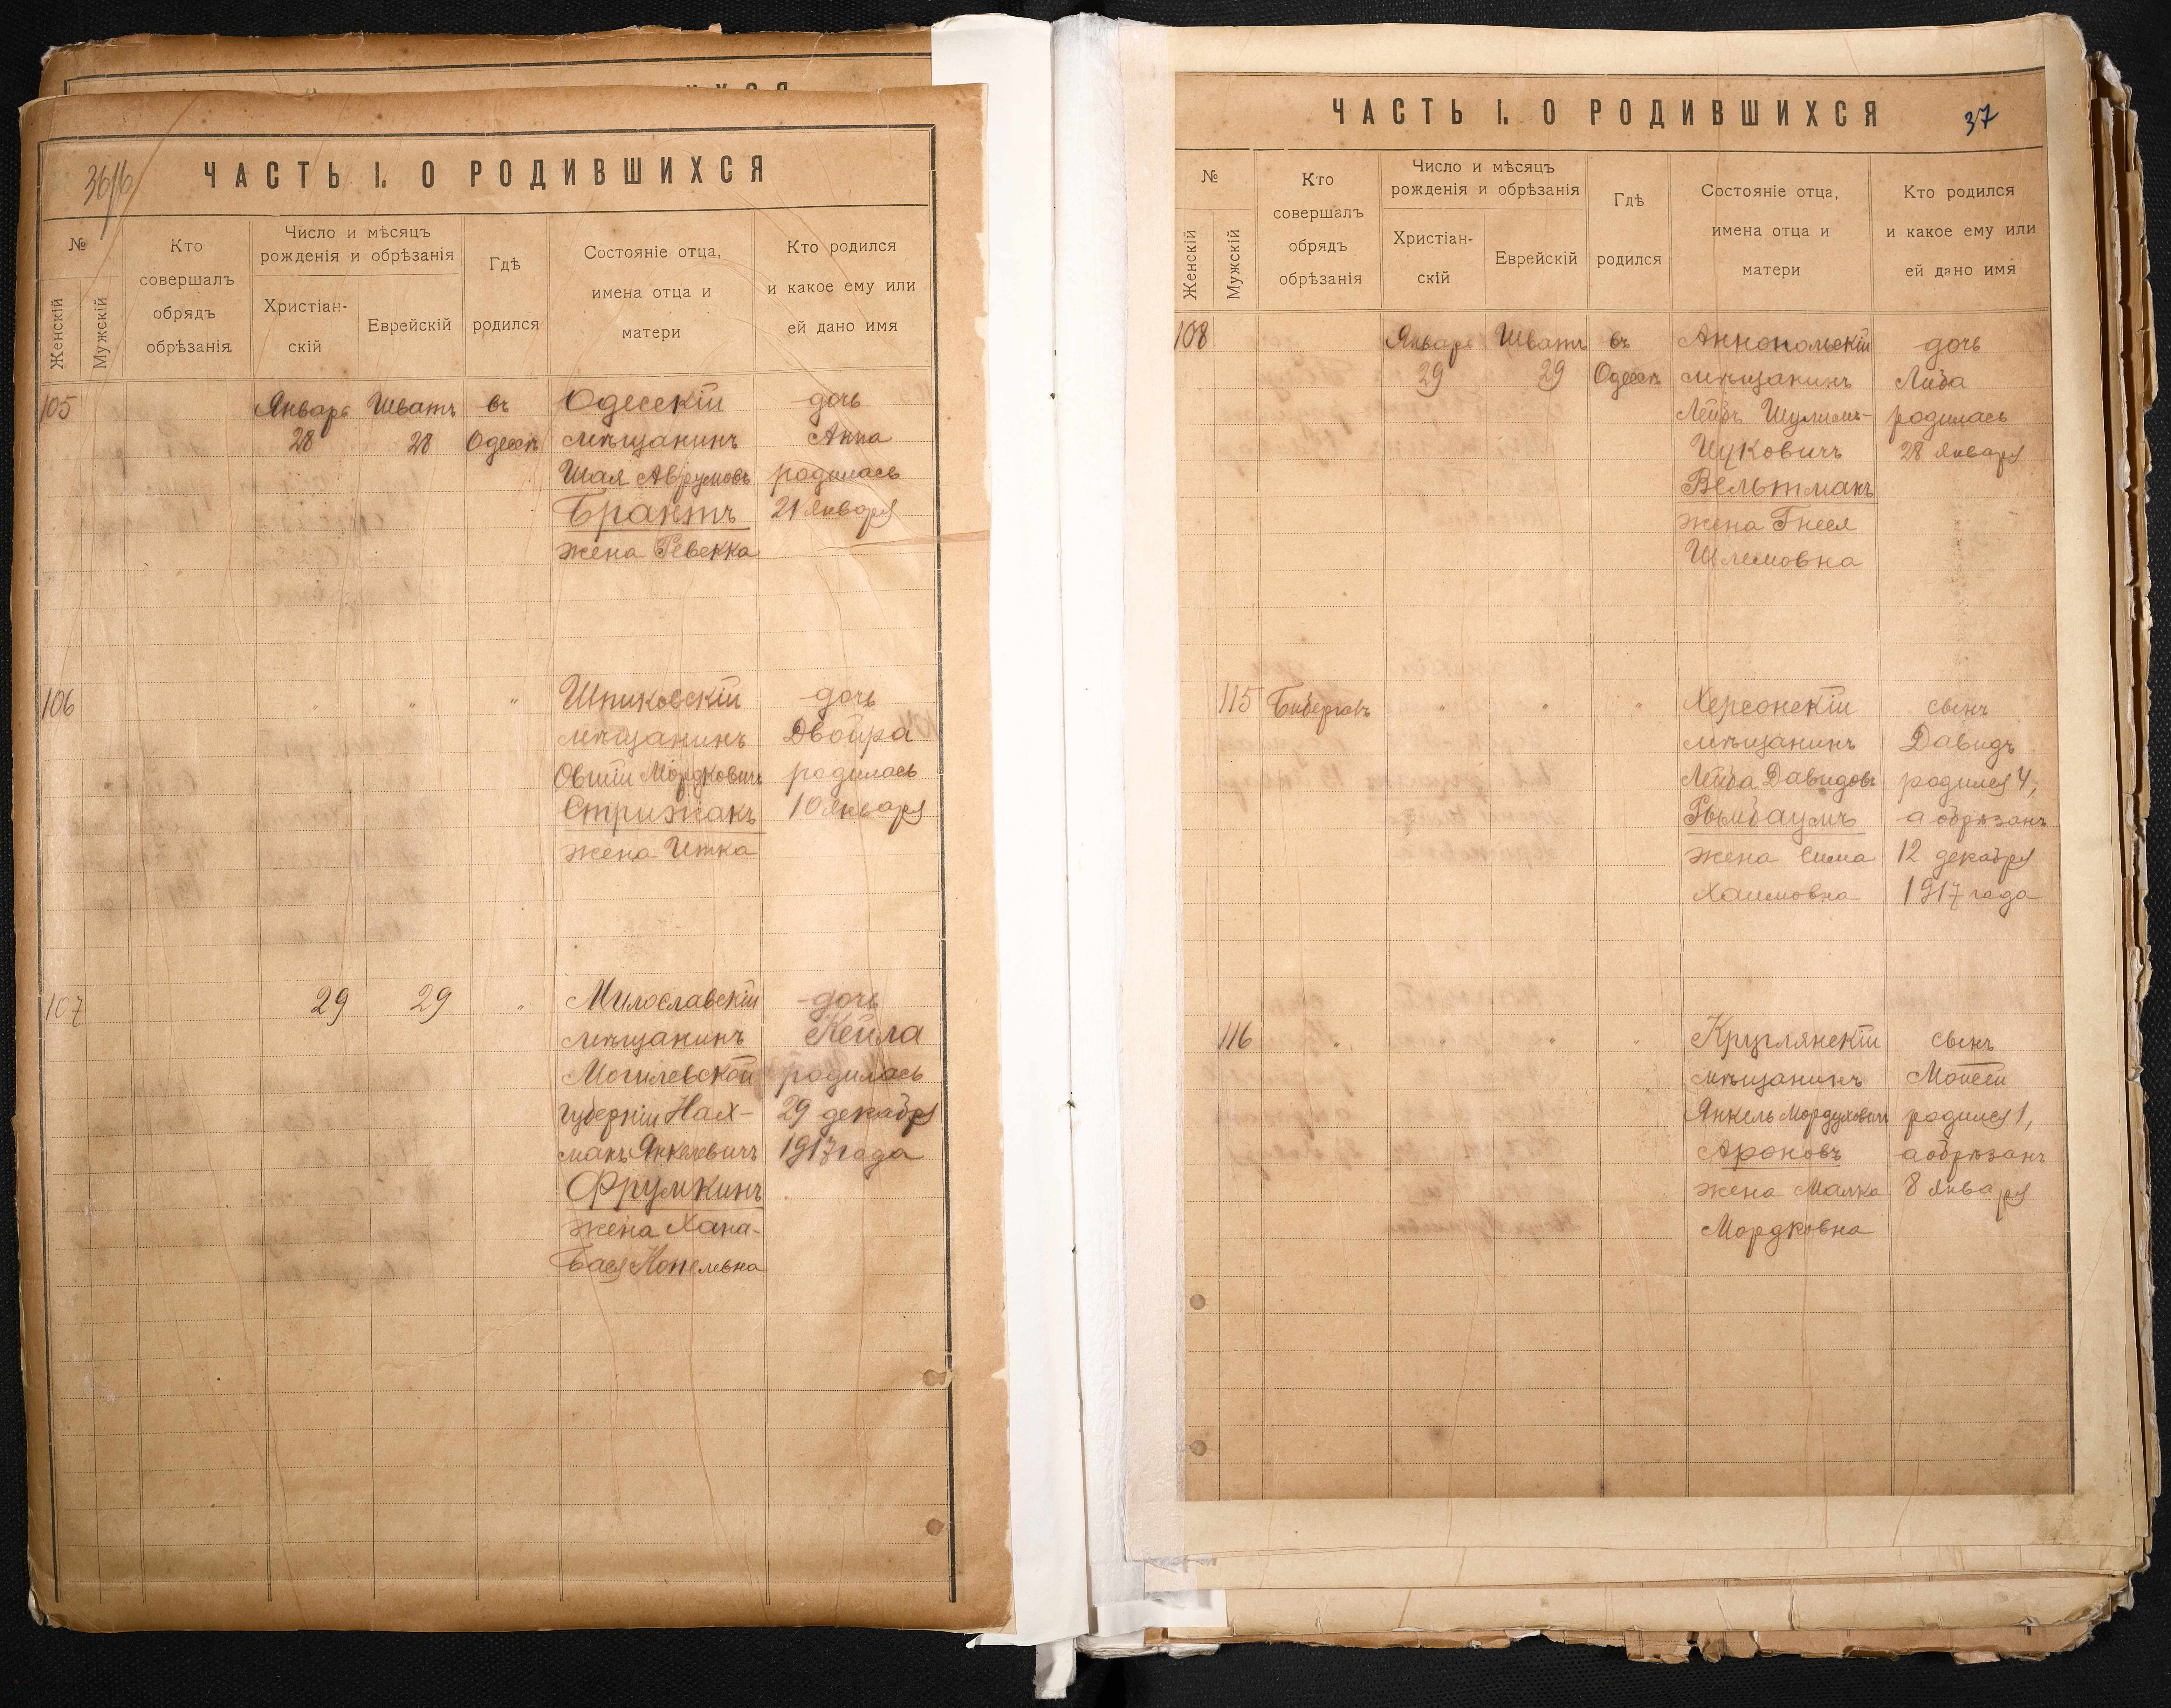 36/16
ЧАСТЬ I. О РОДИВШИХСЯ
№
Женскій
Мужскій
Кто
совершалъ
обрядъ
обрѣзанія
Число и мѣсяцъ
рожденія и обрѣзанія
Христіан-
скій
Еврейскій
Гдѣ
родился
Состояніе отца,
имена отца и
матери
Кто родился
и какое ему или
ей дано имя
105 Январь Шватъ въ Одесскій дочь
28 28 Одессѣ мѣщанинъ Анна
Шая Аврумовъ родилась
Брантъ 21 января
жена Ревекка
106 " " " Шпиковскій дочь
мѣщанинъ Двойра
Овшій Мордковичъ родилась
Стрижакъ 10 января
жена Итка
107 29 29 " Милославскій дочь
мѣщанинъ Кейла
Могилевской родилась
губерніи Нах- 29 декабря
манъ Янкелевичъ 1917 года
Фрумкинъ
жена Хана-
Бася Копелевна
ЧАСТЬ I. О РОДИВШИХСЯ 37
№
Женскій
Мужскій
Кто
совершалъ
обрядъ
обрѣзанія
Число и мѣсяцъ
рожденія и обрѣзанія
Христіан-
скій
Еврейскій
Гдѣ
родился
Состояніе отца,
имена отца и
матери
Кто родился
и какое ему или
ей дано имя
108 Январь Шватъ въ Аннопольскій дочь
29 29 Одессѣ мѣщанинъ Либа
Лейбъ Шулимъ- родилась
Ицковичъ 28 января
Вельтманъ
жена Гнеся
Шлемовна
115 " " " Херсонскій сынъ
мѣщанинъ Давидъ
Лейба Давидовъ родился 4,
а обрѣзанъ
жена Сима 12 декабря
Хаимовна 1917 года
116 " " " " Круглянскій сынъ
мѣщанинъ Мойсей
Янкель Мордуховичъ родился 1,
Ароновъ а обрѣзанъ
жена Малка 8 января
Мордковна